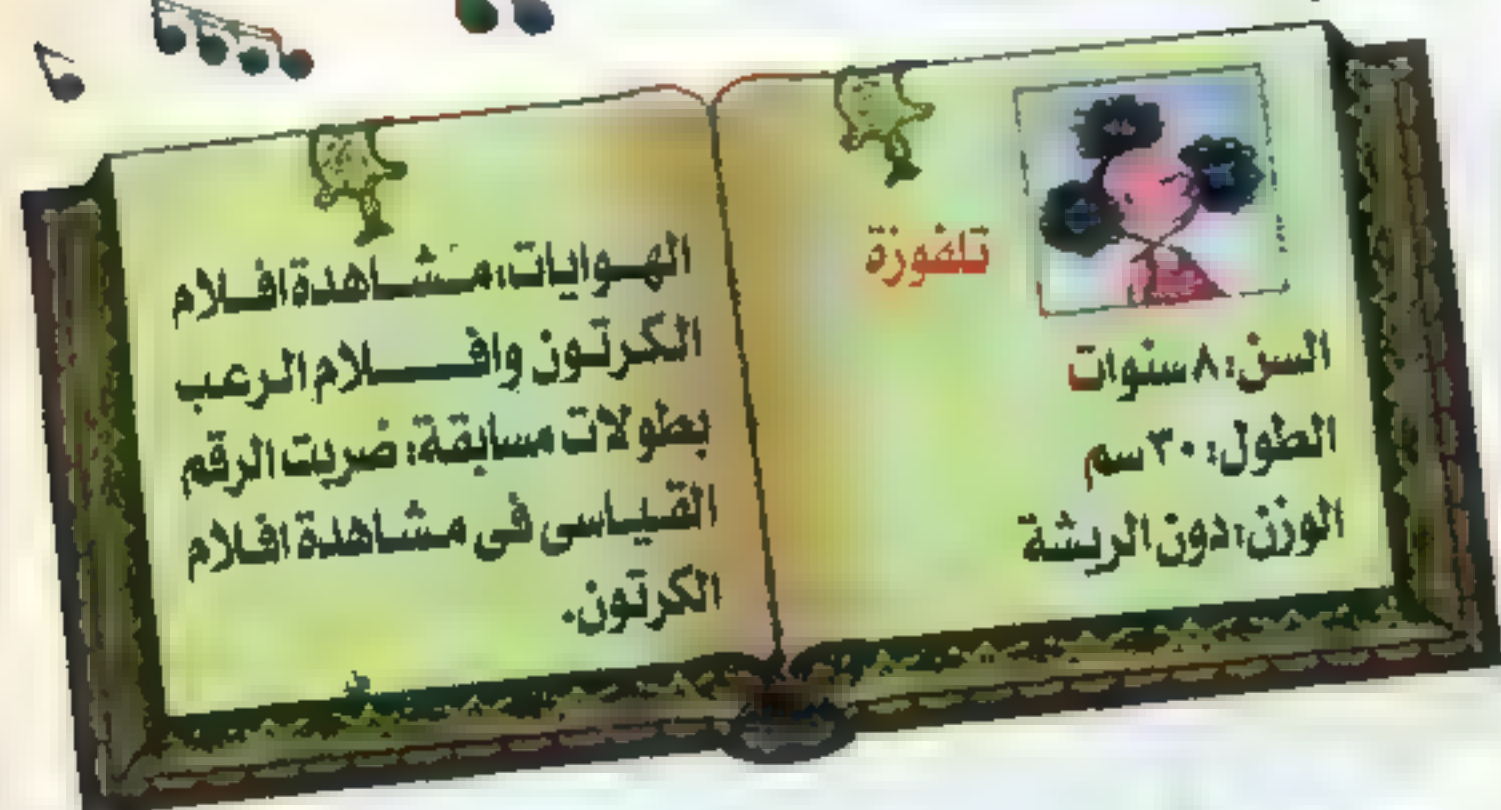 تلفوزة
السن: ٨ سنوات
الطول: ٣٠ سم
الوزن: دون الريشة
الهوايات: مشاهدة افلام
الكرتون وافلام الرعب
بطولات مسابقة: ضربت الرقم
القياسى فى مشاهدة افلام
الكرتون.